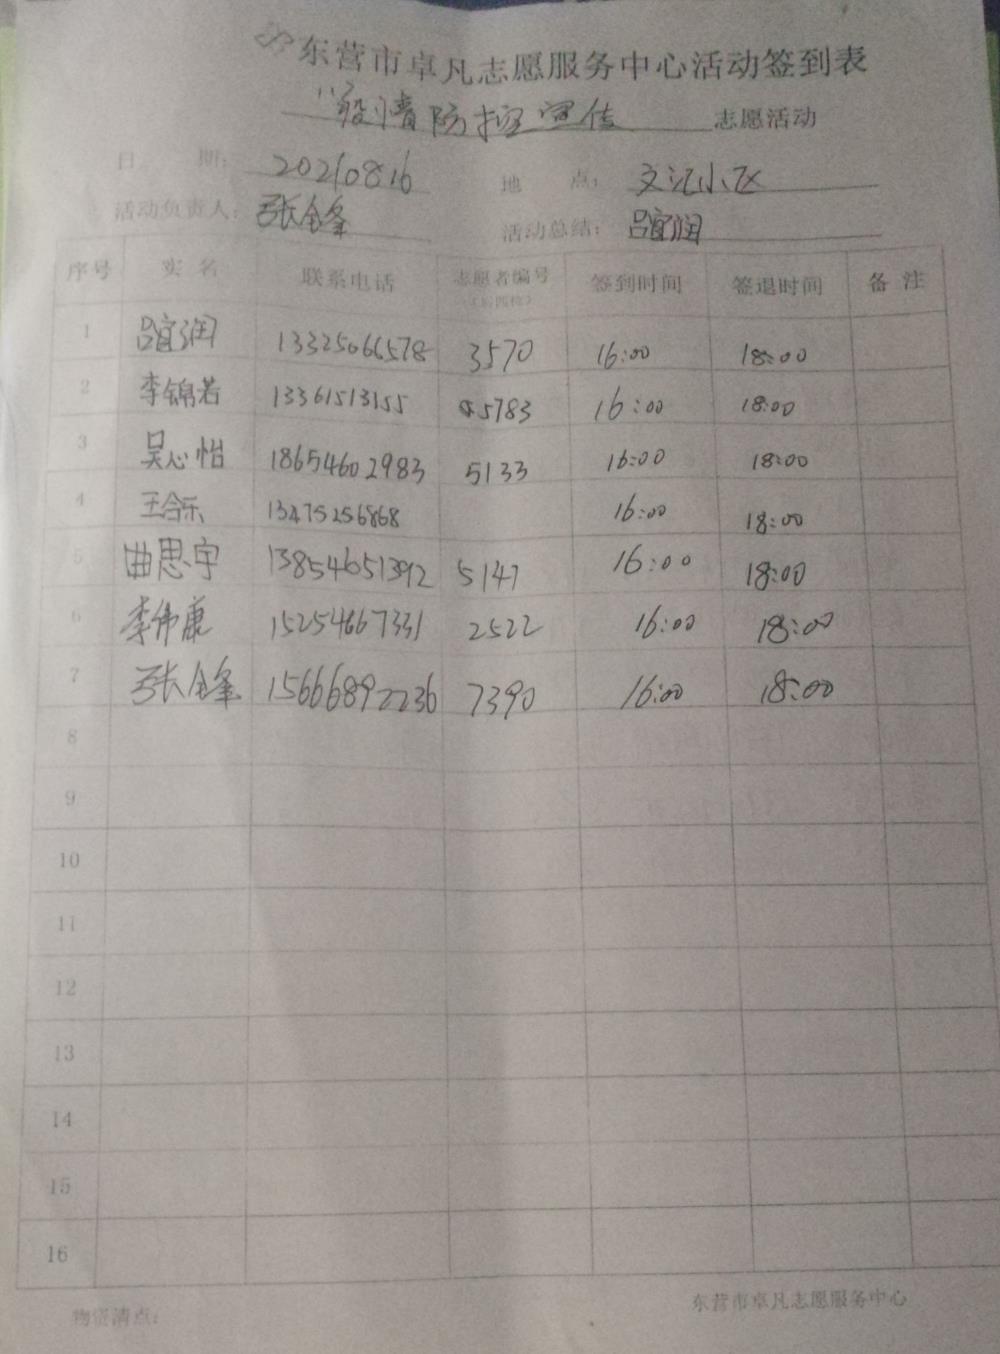 东营市卓凡志愿服务中心活动签到表
"疫情防控宣传 志愿活动
日 期: 20210816 地 点: 文汇小区
活动负责人: 张全峰 活动总结: 吕宜润
序号 实名 联系电话 志愿者编号 签到时间 签退时间 备注
(后四位)
1 吕宜润 13325066578 3570 16:00 18:00
2 李锦若 13361513155 5783 16:00 18:00
3 吴心怡 18654602983 5133 16:00 18:00
4 王合乐 13475256868 16:00 18:00
5 曲思宇 13854651392 5147 16:00 18:00
6 李伟康 15254667331 2522 16:00 18:00
7 张全峰 15666892236 7390 16:00 18:00
8
9
10
11
12
13
14
15
16
物资清点: 东营市卓凡志愿服务中心